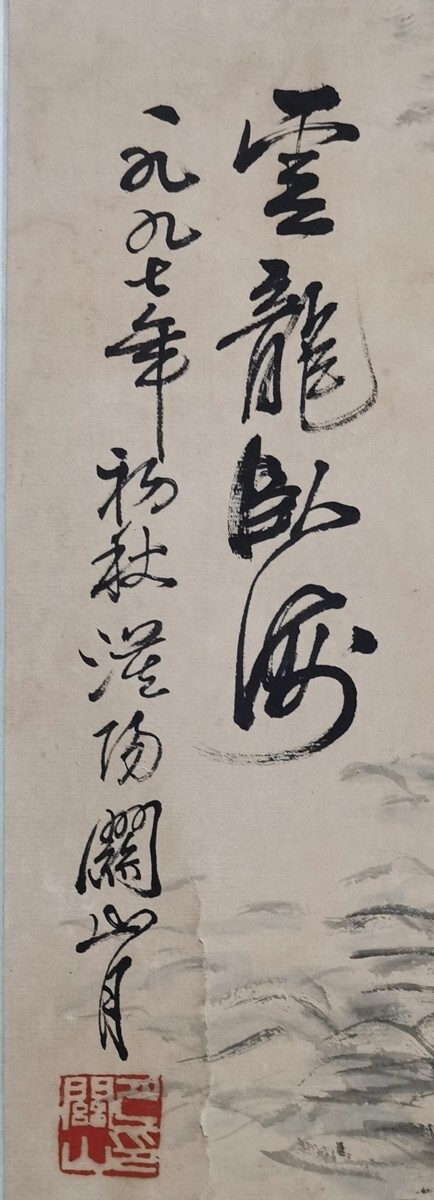 雲龍臥海
一九九七年初秋漠陽關山月
關山